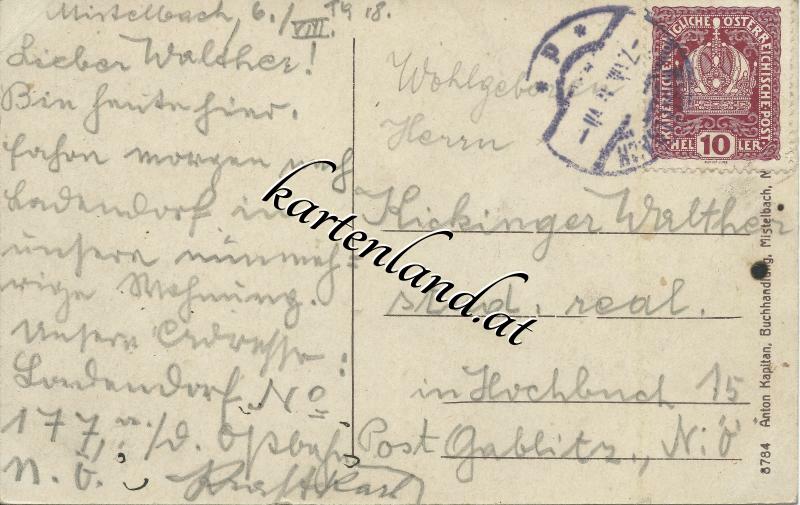 Mistelbach, 6./VIII. 1918.
Lieber Walther!
Bin heute hier,
fahre morgen nach
Ladendorf in
unsere nunmeh-
rige Wohnung.
Unsere Adresse:
Ladendorf No
177, a./d. Ostbahn
N. Ö.
Karl
Wohlgeboren
Herrn
Kickinger Walther
stud. real.
in Hochbuch 15
Post Gablitz, N. Ö
KAISERLICHE KÖNIGLICHE ÖSTERREICHISCHE POST
HEL 10 LER
8784 Anton Kapitan, Buchhandlung, Mistelbach, N
kartenland.at